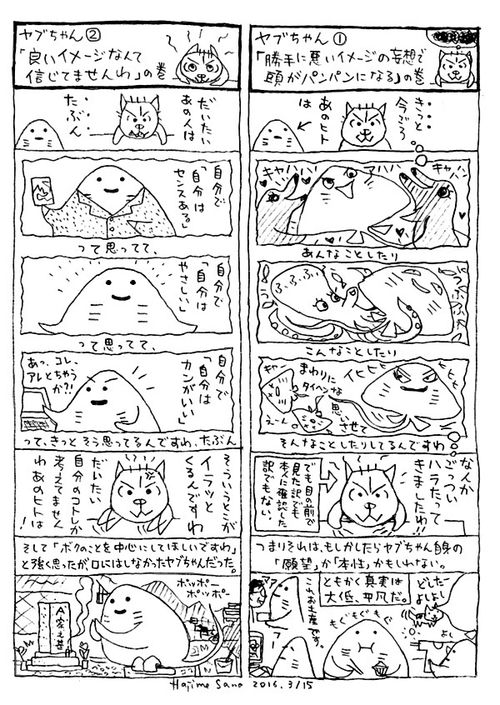 ヤブちゃん①
「勝手に悪いイメージの妄想で
頭がパンパンになる」の巻
・・・きっと
今ごろ
あのヒト
は
キャハハ
キャハハ
あんなことしたり
ふふふ
うふふ
こんなことしたり
イヒヒ
キャー
まわりに
タイヘンな
思い
させて
え〜ん
そんなことしたりしてるんですわ
なんか
ごっつい
ハラたって
きましたわ!!
でも目の前で
見た訳でも
本人に確認した
訳でもない。
つまりそれは、もしかしたらヤブちゃん自身の
「願望」か「本性」かもしれない。
ともかく真実は
大低、平凡だ。
どしたー
よしよし
よし
これお土産です。
もぐもぐもぐ
ヤブちゃん②
「良いイメージなんて
信じてませんわ」の巻
だいたい
あの人は
・・・
たぶん
自分で
「自分は
センスある」
って思ってて、
自分で
「自分は
やさしい」
って思ってて、
自分で
「自分は
カンがいい」
あっ、コレ、
アレとちゃう
か?!
って、きっとそう思ってるんですわ、たぶん
そういうとこが
イラッと
くるんですわ
だいたい
自分のコトしか
考えてません
わあのヒトは!
そして「ボクのことを中心にしてほしいですわ」
と強く思ったが口にはしなかったヤブちゃんだった。
ポッポー
ポッポー
A家之墓
Hajime Sano 2016.3/15